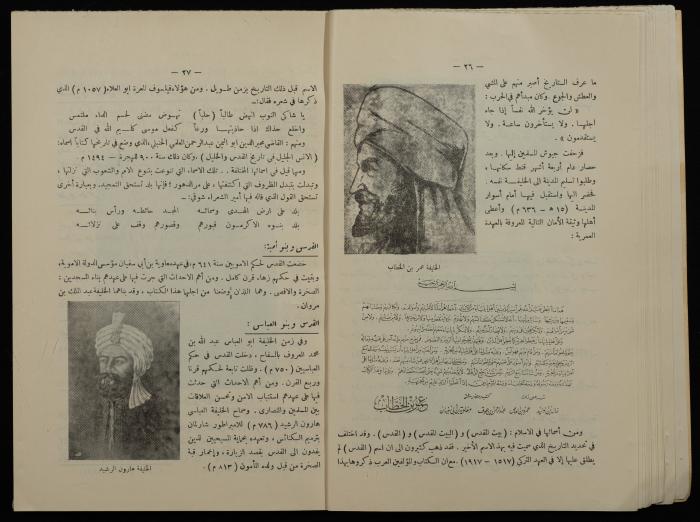 — ٢٦ —
ما عرف التاريخ أصبر منهم على المشي
والعطش والجوع . وكان مبدأهم في الحرب :
« لن يؤخر الله نفساً إذا جاء
أجلها . ولا يستأخرون ساعة . ولا
يستقدمون » .
فزحفت جيوش المسلمين إليها . وبعد
حصار دام أربعة أشهر قنط سكانها ،
وطلبوا تسليم المدينة الى الخليفة نفسه .
فحضر إليها واستقبل فيها أمام أسوار
المدينة (١٥ هـ — ٦٣٦ م) وأعطى
أهلها وثيقة الأمان التالية المعروفة بالعهدة
العمرية :
الخليفة عمر بن الخطاب
عمر بن الخطاب
ومن أسمائها في الاسلام : (بيت المقدس) و (البيت المقدس) و (القدس) . وقد اختلف
في تحديد التاريخ الذي سميت فيه بهذا الاسم الأخير . فقد ذهب كثيرون الى ان اسم (القدس) لم
يطلق عليها إلا في العهد التركي (١٥١٧ — ١٩١٧) . مع ان الكتاب والمؤلفين العرب ذكروها بهذا
— ٢٧ —
الاسم قبل ذلك التاريخ بزمن طويل . ومن هؤلاء فيلسوف المعرة ابو العلاء (١٠٥٧ م) الذي
ذكرها في شعره فقال :ـ
يا شاكي النوب انهض طالباً (حلباً) نهوض مضنى لحسم الداء ملتمس
واخلع حذاك إذا حاذيتها ورعاً كفعل موسى كليم الله في القدس
ومنهم : القاضي مجير الدين ابو اليمن عبد الرحمن العليمي الحنبلي ، الذي وضع في تاريخها كتاباً اسماه :
(الانس الجليل في تاريخ القدس والخليل) ، وكان ذلك سنة ٩٠٠ للهجرة — ١٤٩٤ م .
وما قيل في اسمائها المختلفة . تلك الاسماء ، التي تنوعت بتنوع الامم والشعوب التي نزلتها ،
وتبدلت بتبدل الظروف التي اكتنفتها ، على مر الدهور ! فإنها بلد تستحق التمجيد . وبعبارة أخرى
تستحق القول الذي قاله فيها أمير الشعراء شوقي :ـ
بلد على أرض الهدى وسمائه المجد حائطه ورأس بنائه
بلد بنوه الاكرمون قبورهم وقصورهم وقف على نزلائه
القدس وبنو أمية :
خضعت القدس لحكم الامويين سنة ٦٤١ م ، في عهد معاوية بن أبي سفيان مؤسس الدولة الاموية ،
وبقيت في حكمهم زهاء قرن كامل . ومن أهم الاحداث التي جرت فيها على عهدهم بناء المسجدين :
الصخرة والاقصى . وهما اللذان وضعنا من اجلها هذا الكتاب ، وقد بناهما الخليفة عبد الملك بن
مروان .
القدس وبنو العباس :
وفي زمن الخليفة ابو العباس عبد الله بن
محمد المعروف بالسفاح ، دخلت القدس في حكم
العباسيين (٧٥٠ م) . وظلت تابعة لحكمهم قرنا
وربع القرن . ومن أهم الاحداث التي حدثت
فيها على عهدهم استتباب الامن وتحسن العلاقات
بين المسلمين والنصارى . وسماح الخليفة العباسي
هارون الرشيد (٧٨٦ م) للامبراطور شارلمان
بترميم الكنائس ، وتعهده بحماية المسيحيين الذين
يفدون الى القدس بقصد الزيارة ، وإعمار قبة
الصخرة من قبل ولده المأمون (٨١٣ م) .
الخليفة هارون الرشيد